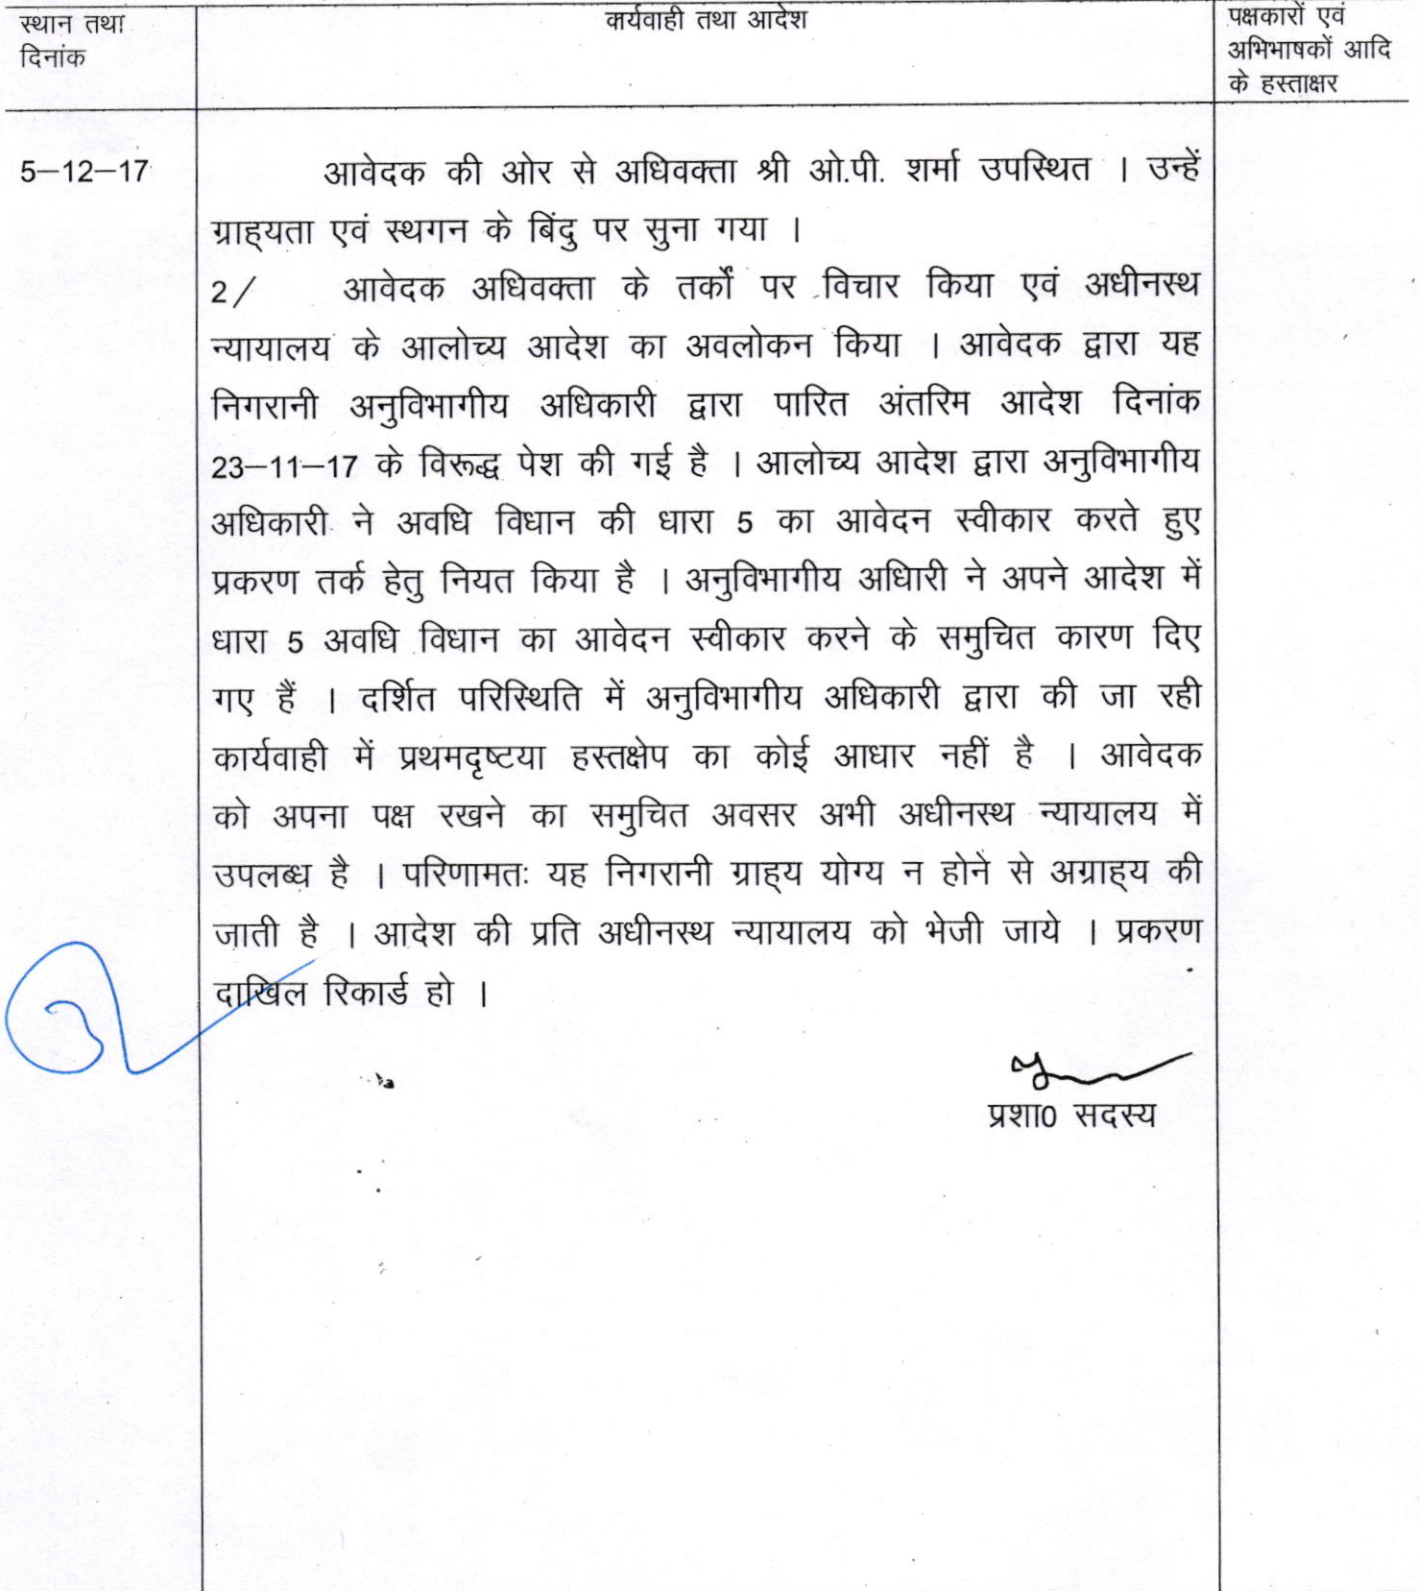 स्थान तथा
दिनांक
कार्यवाही तथा आदेश
पक्षकारों एवं
अभिभाषकों आदि
के हस्ताक्षर
5–12–17
आवेदक की ओर से अधिवक्ता श्री ओ.पी. शर्मा उपस्थित । उन्हें
ग्राह्यता एवं स्थगन के बिंदु पर सुना गया ।
2/ आवेदक अधिवक्ता के तर्कों पर विचार किया एवं अधीनस्थ
न्यायालय के आलोच्य आदेश का अवलोकन किया । आवेदक द्वारा यह
निगरानी अनुविभागीय अधिकारी द्वारा पारित अंतरिम आदेश दिनांक
23–11–17 के विरूद्ध पेश की गई है । आलोच्य आदेश द्वारा अनुविभागीय
अधिकारी ने अवधि विधान की धारा 5 का आवेदन स्वीकार करते हुए
प्रकरण तर्क हेतु नियत किया है । अनुविभागीय अधिारी ने अपने आदेश में
धारा 5 अवधि विधान का आवेदन स्वीकार करने के समुचित कारण दिए
गए हैं । दर्शित परिस्थिति में अनुविभागीय अधिकारी द्वारा की जा रही
कार्यवाही में प्रथमदृष्टया हस्तक्षेप का कोई आधार नहीं है । आवेदक
को अपना पक्ष रखने का समुचित अवसर अभी अधीनस्थ न्यायालय में
उपलब्ध है । परिणामतः यह निगरानी ग्राह्य योग्य न होने से अग्राह्य की
जाती है । आदेश की प्रति अधीनस्थ न्यायालय को भेजी जाये । प्रकरण
दाखिल रिकार्ड हो ।
प्रशा0 सदस्य